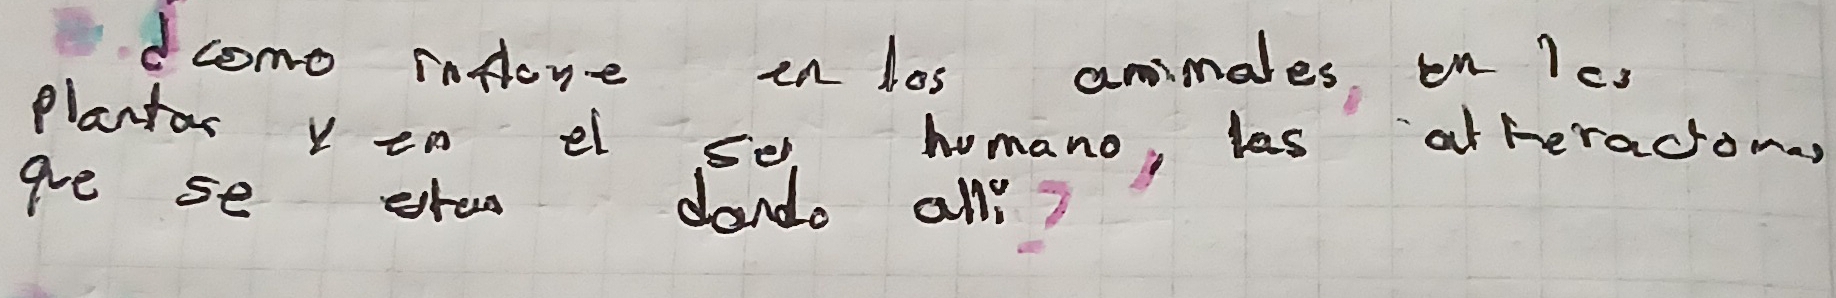 ¿como influye en los animales, en las
plantas y en el ser humano, las altheractomas
que se estan dando alli?